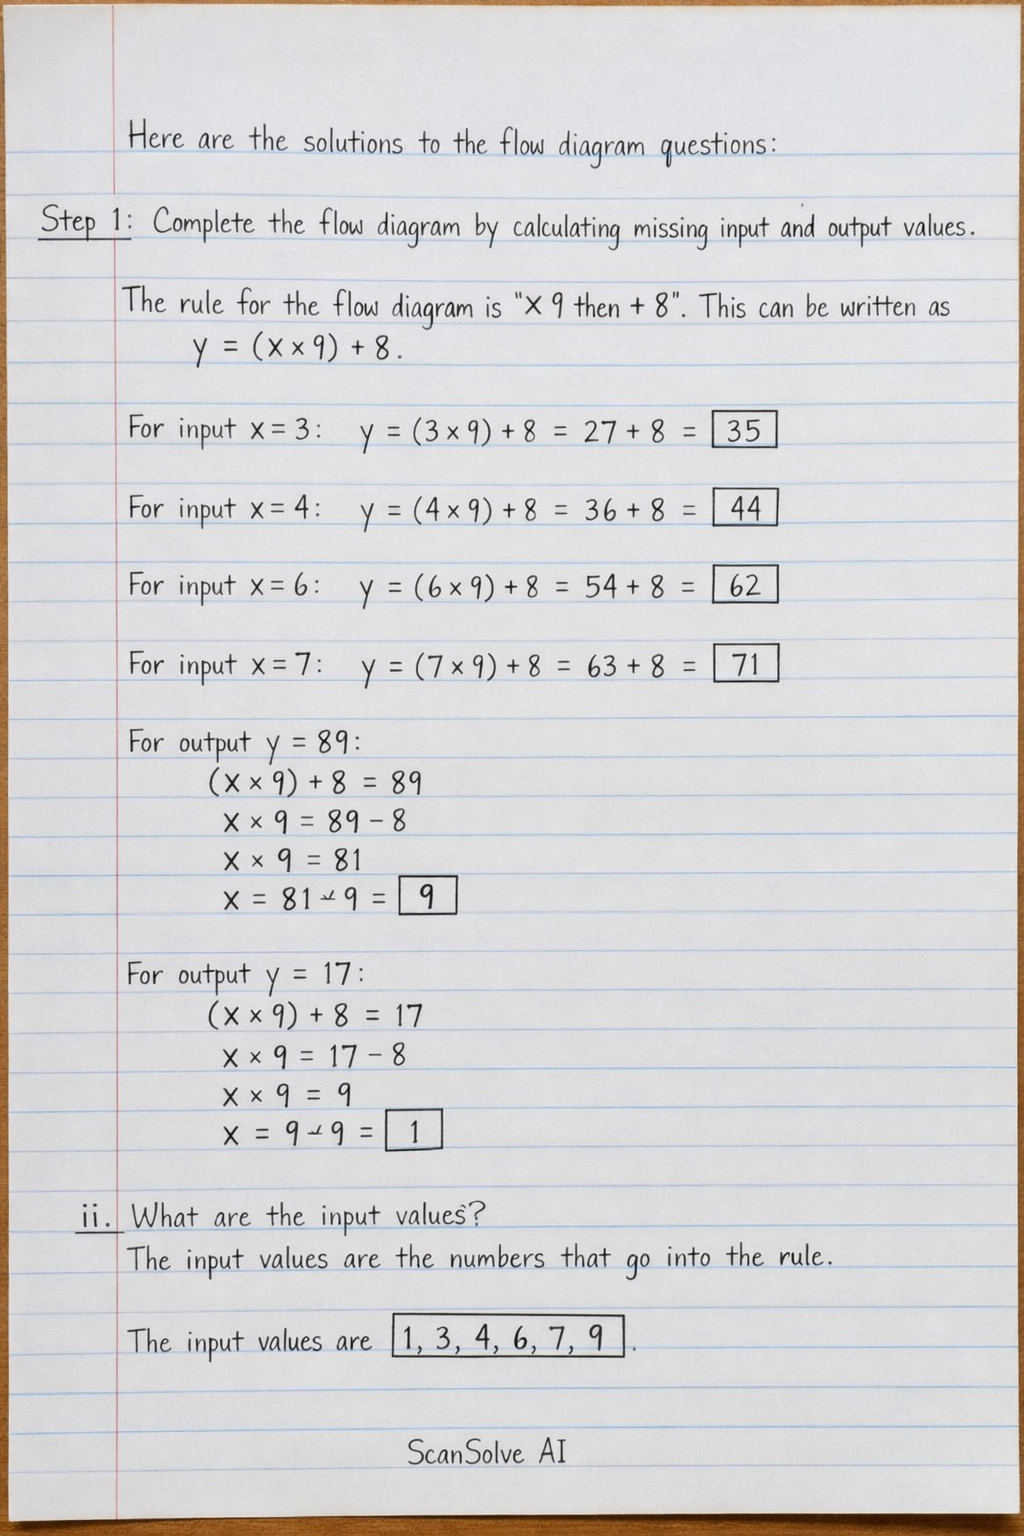 Here are the solutions to the flow diagram questions:
Step 1: Complete the flow diagram by calculating missing input and output values.
The rule for the flow diagram is "× 9 then + 8". This can be written as
y = (x × 9) + 8.
For input x = 3: y = (3 × 9) + 8 = 27 + 8 = 35
For input x = 4: y = (4 × 9) + 8 = 36 + 8 = 44
For input x = 6: y = (6 × 9) + 8 = 54 + 8 = 62
For input x = 7: y = (7 × 9) + 8 = 63 + 8 = 71
For output y = 89:
(x × 9) + 8 = 89
x × 9 = 89 - 8
x × 9 = 81
x = 81 ÷ 9 = 9
For output y = 17:
(x × 9) + 8 = 17
x × 9 = 17 - 8
x × 9 = 9
x = 9 ÷ 9 = 1
ii. What are the input values?
The input values are the numbers that go into the rule.
The input values are 1, 3, 4, 6, 7, 9.
ScanSolve AI